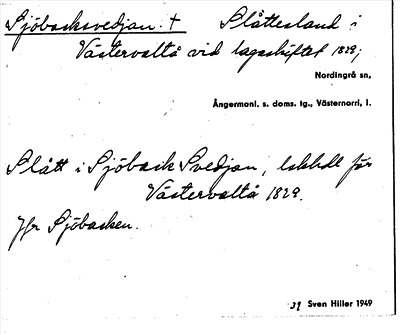 Sjöbacksvedjan. † Slåttesland i
Västervaltå vid lagaskiftet 1829;
Nordingrå sn,
Ångermanl. s. doms. lg., Västernorrl. l.
Slått i Sjöback Svedjan, för
Västervaltå 1829.
Jfr Sjöbacken.
39 Sven Hiller 1949